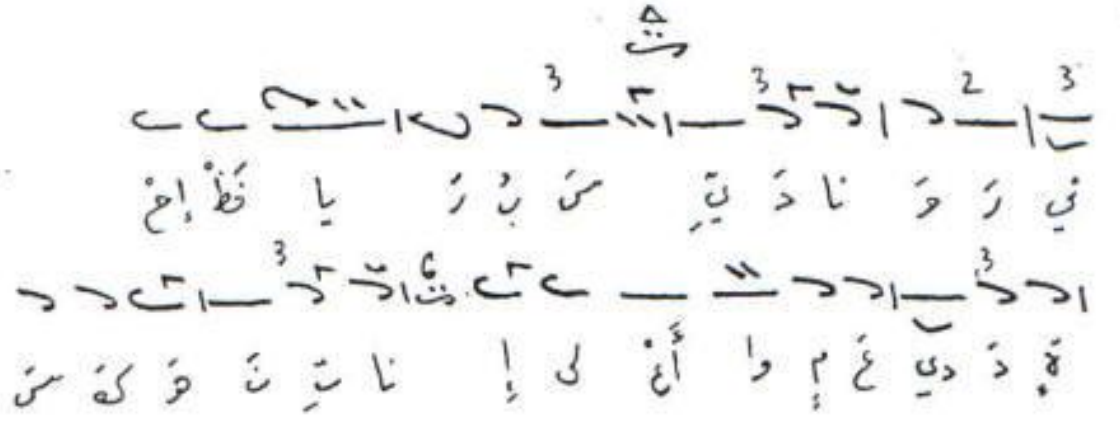 Δ
3 3 2 3
إحْ فَظْ يا رَ بُ سَ يِّ دَ نا وَ رَ ئي
3 6 3
سَ كَ هَ نَ تِ نا إِ لى أَعْ وا مٍ عَ دي دَ ةٍ